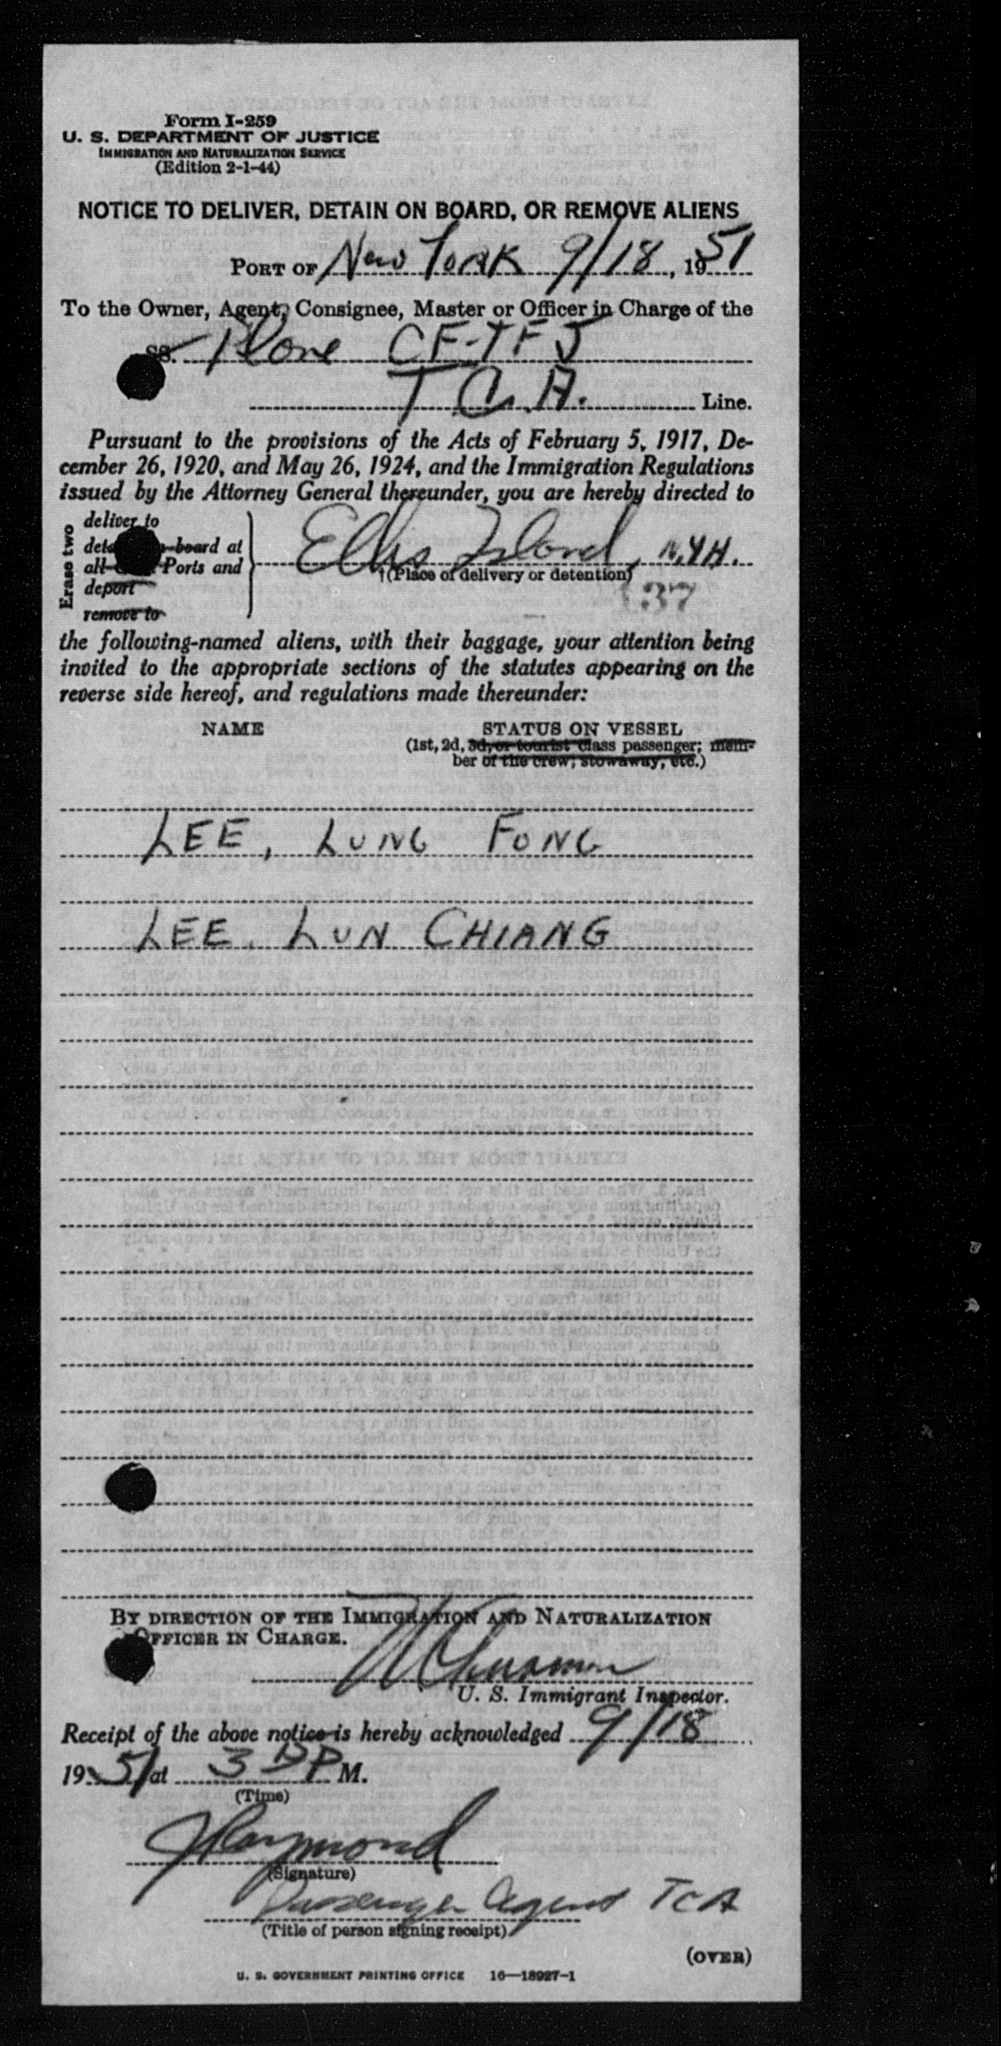 Form I-259
U. S. DEPARTMENT OF JUSTICE
IMMIGRATION AND NATURALIZATION SERVICE
(Edition 2-1-44)
NOTICE TO DELIVER, DETAIN ON BOARD, OR REMOVE ALIENS
PORT OF New York 9/18, 1951
To the Owner, Agent, Consignee, Master or Officer in Charge of the
SS. Plane CF-TFJ
T.C.A. Line.
Pursuant to the provisions of the Acts of February 5, 1917, De-
cember 26, 1920, and May 26, 1924, and the Immigration Regulations
issued by the Attorney General thereunder, you are hereby directed to
Erase two
deliver to
board at
all Ports and
deport
remove to
Ellis Island, N.Y.H.
(Place of delivery or detention)
37
the following-named aliens, with their baggage, your attention being
invited to the appropriate sections of the statutes appearing on the
reverse side hereof, and regulations made thereunder:
NAME STATUS ON VESSEL
(1st, 2d, 3d, or tourist class passenger; mem-
ber of the crew; stowaway, etc.)
LEE, LUNG FONG
LEE, LUN CHIANG
BY DIRECTION OF THE IMMIGRATION AND NATURALIZATION
OFFICER IN CHARGE.
U. S. Immigrant Inspector.
Receipt of the above notice is hereby acknowledged 9/18
1951 at 3 P M.
(Time)
Raymond
(Signature)
Passenger Agent TCA
(Title of person signing receipt)
(OVER)
U. S. GOVERNMENT PRINTING OFFICE 16—18927-1